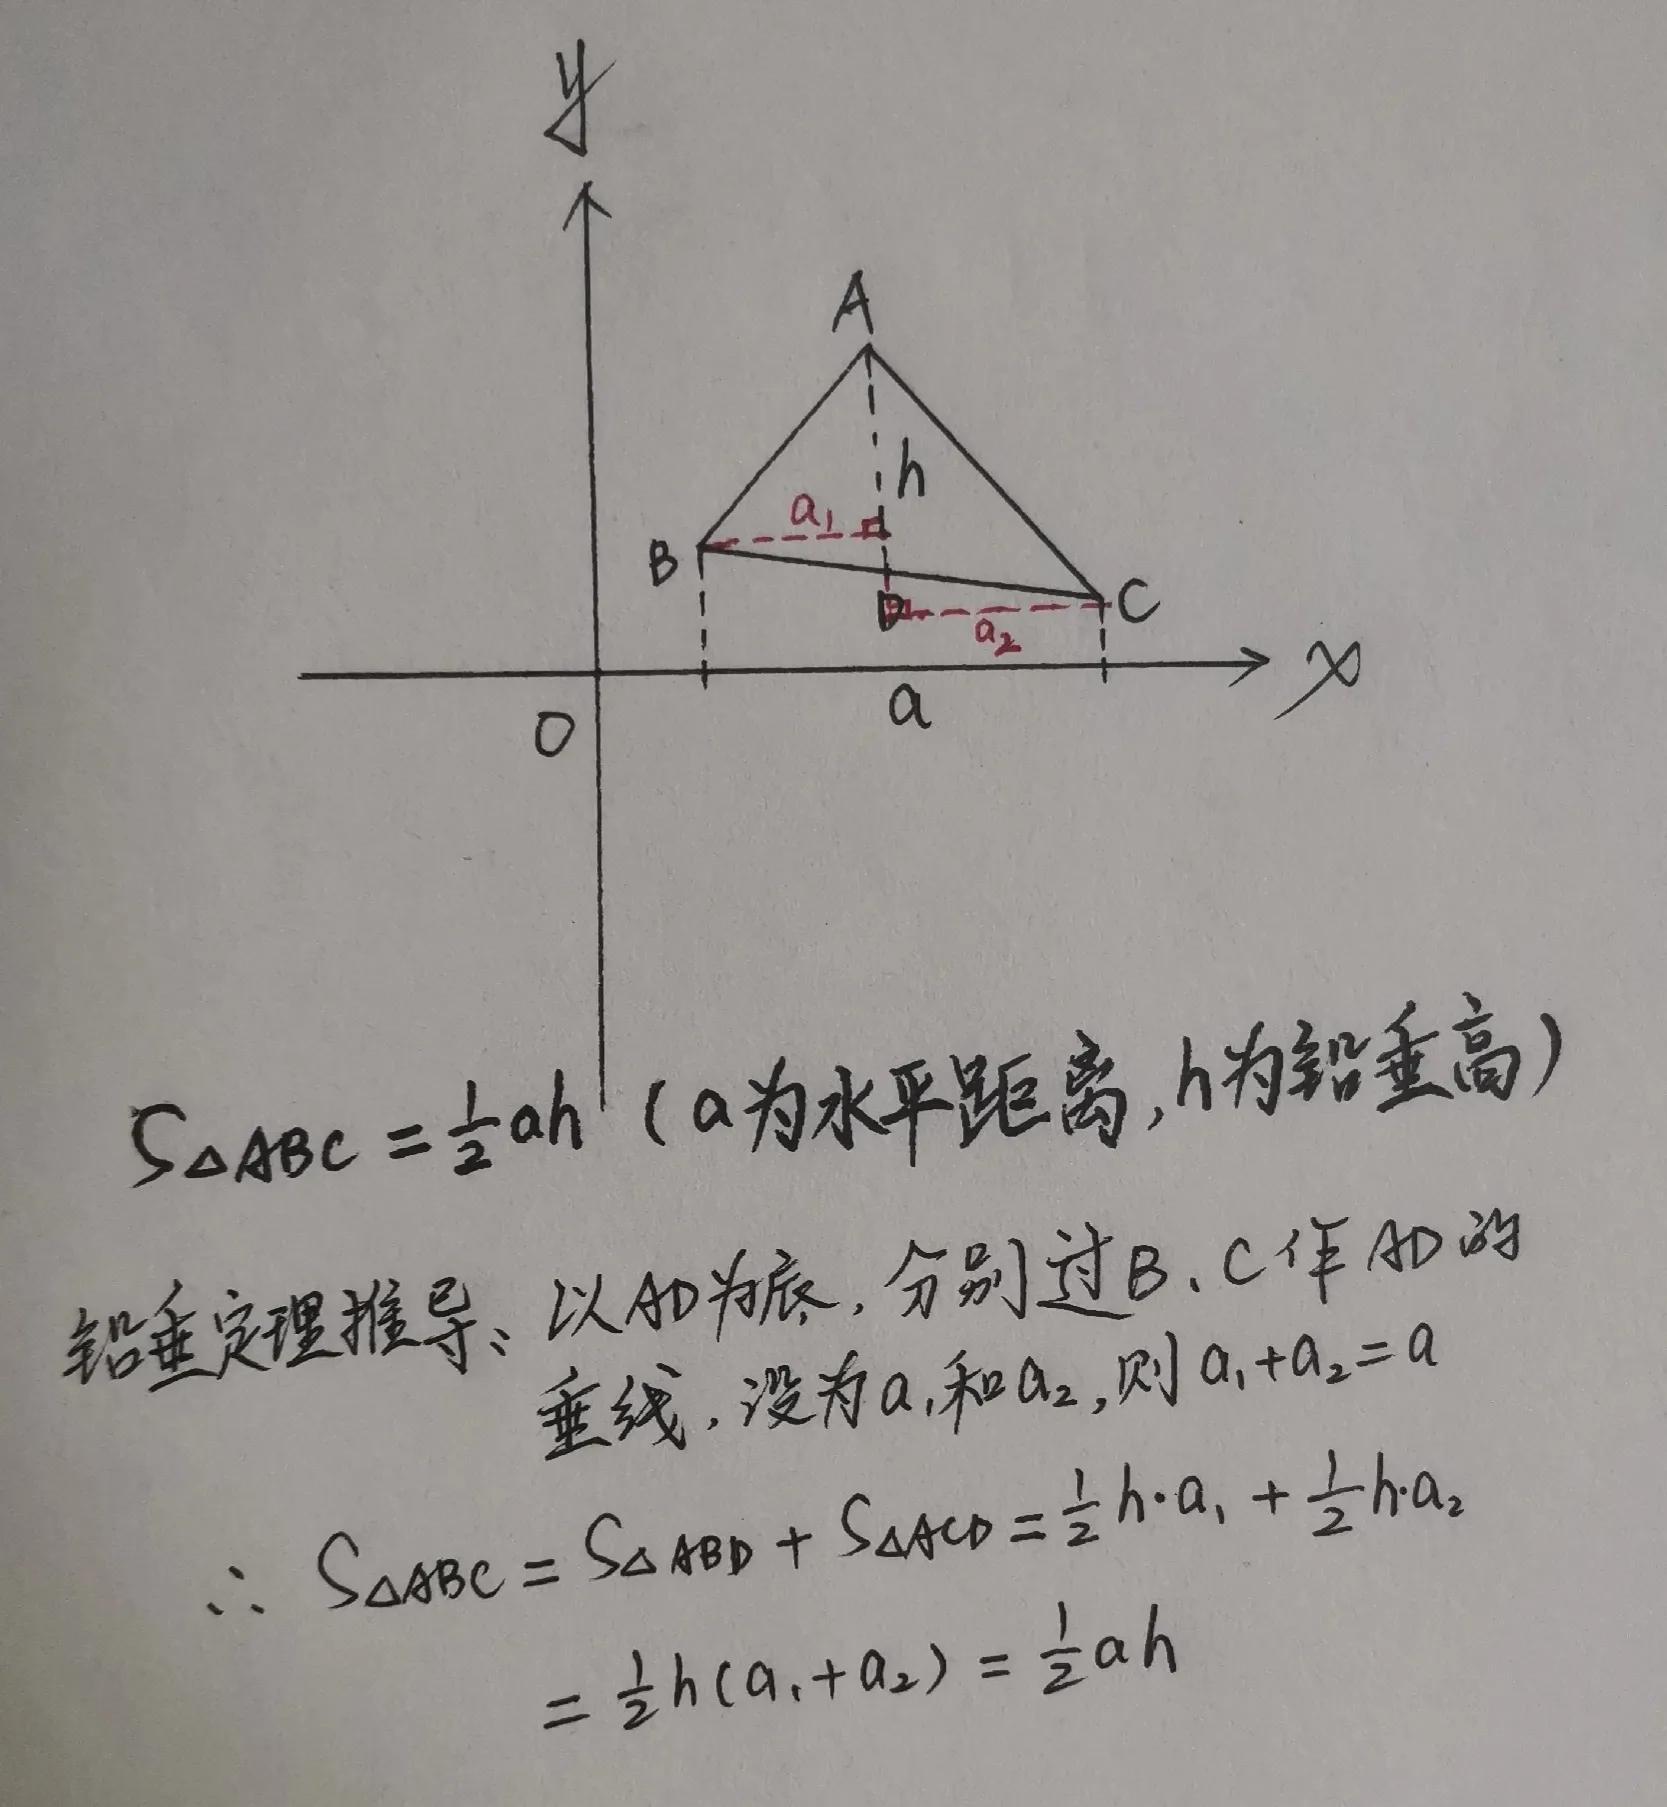 y
A
h
a₁
B
D
C
a₂
x
O
a
S△ABC = ½ah（a为水平距离,h为铅垂高）
铅垂定理推导、以AD为底,分别过B、C作AD的
垂线,设为a₁和a₂,则a₁+a₂=a
∴ S△ABC = S△ABD + S△ACD = ½h·a₁ + ½h·a₂
= ½h(a₁+a₂) = ½ah